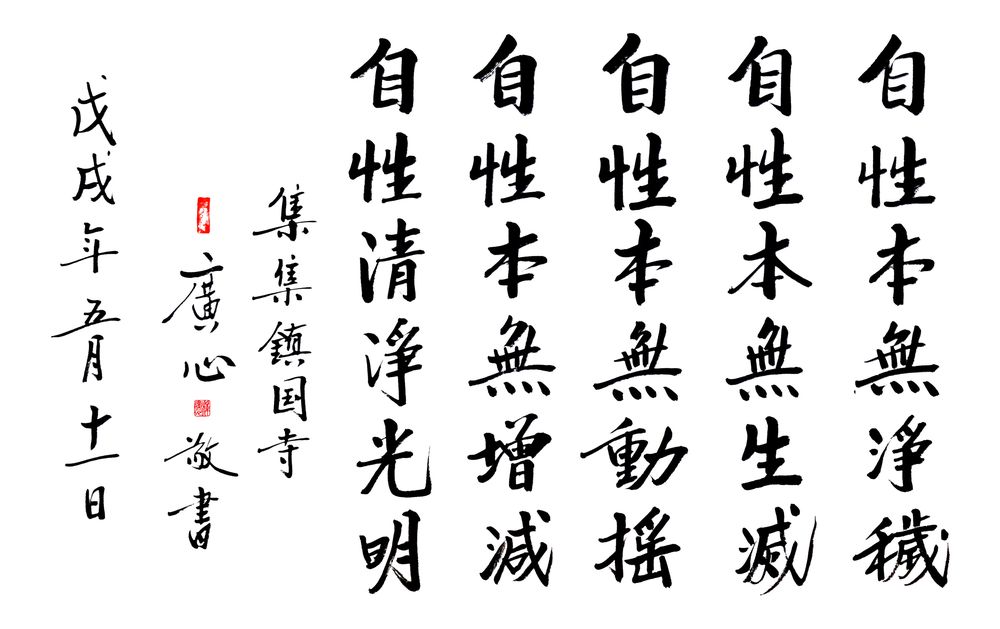 自性本無淨穢
自性本無生滅
自性本無動摇
自性本無增減
自性清淨光明
集集鎮国寺
廣心敬書
戊戌年五月十一日